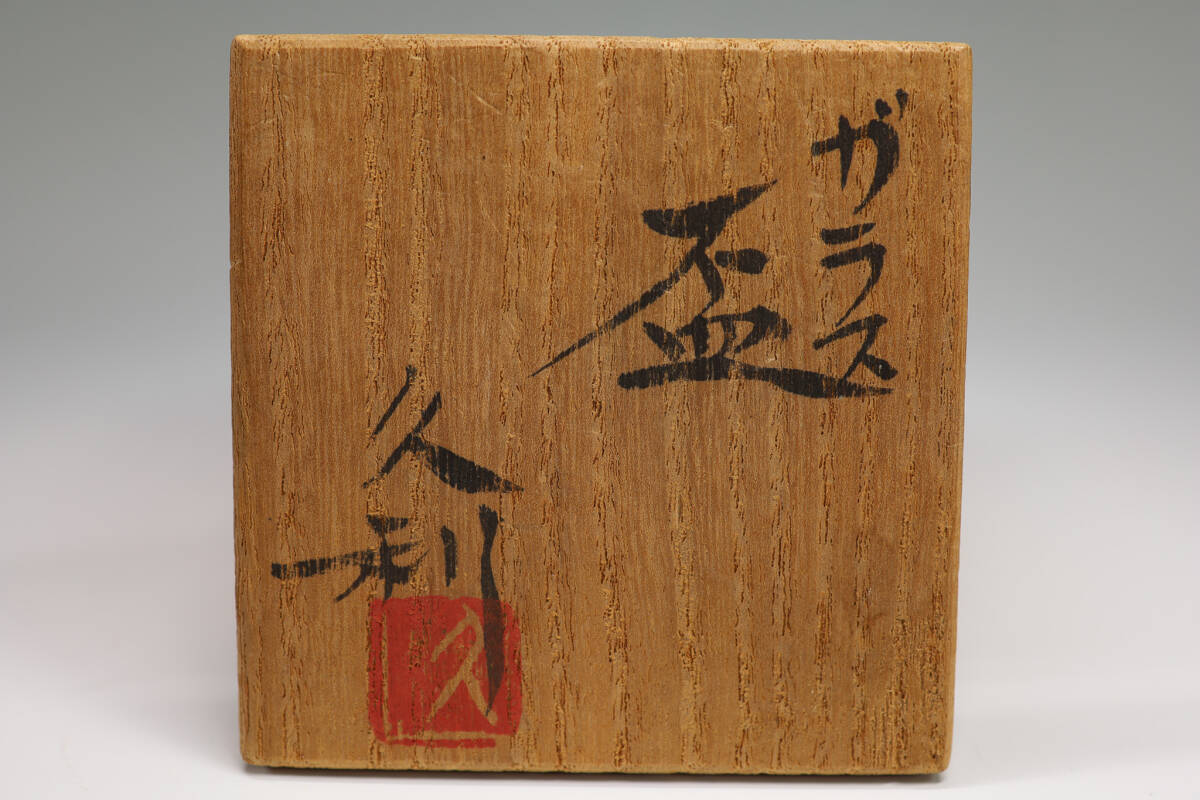 ガラス
盃
久利
久